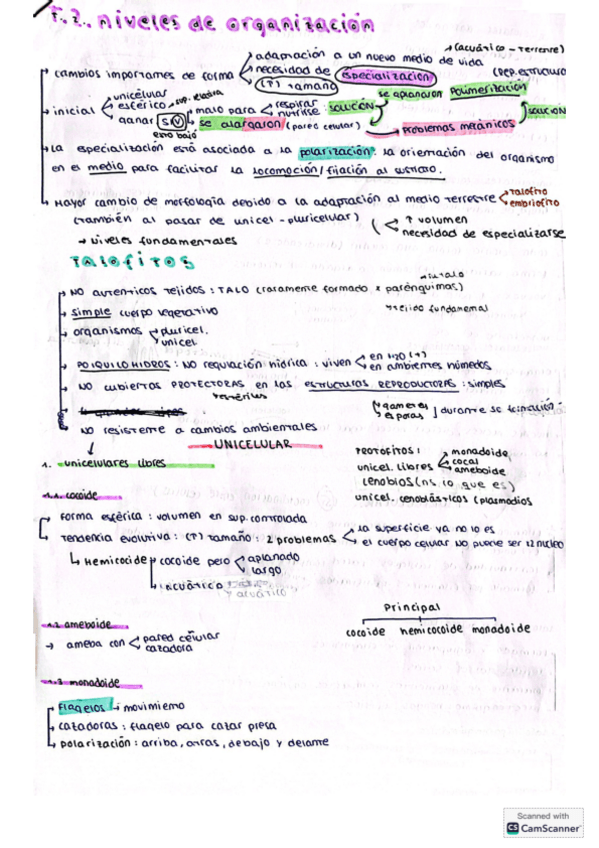 T.2. niveles de organización
cambios importantes de forma
adaptación a un nuevo medio de vida (acuático - terrestre)
necesidad de especialización (dep. estructura
(↑) tamaño
inicial
unicelular
esférico
ganar S V
sup. elevada
esto bajo
malo para
respirar
nutrirse: solución
se alargaron (pared celular)
se aplanaron Polimerización
problemas mecánicos
solución
La especialización está asociada a la polarización: la orientación del organismo
en el medio para facilitar la locomoción/fijación al sustrato.
Mayor cambio de morfología debido a la adaptación al medio terrestre
talofito
embriofito
(también al pasar de unicel - pluricelular)
↑ volumen
necesidad de especializarse
→ Niveles fundamentales
TALOFITOS
NO autenticos tejidos: TALO (raramente formado x parénquimas)
→ tejido fundamental
simple cuerpo vegetativo
organismos
pluricel.
unicel
POIQUILOHIDROS: NO regulación hídrica: viven
en H2O (+)
en ambientes húmedos
NO cubiertas PROTECTORAS en las ESTRUCTURAS REPRODUCTORAS: simples
gametos
esporas
durante su formación
NO resistente a cambios ambientales
UNICELULAR
1. unicelulares libres
PROTOFITOS:
unicel. libres
monadoide
cocal
ameboide
cenobios (ns lo que es)
unicel. cenoblásticos (plasmodios
1.1. cocoide
forma esférica: volumen en sup. controlada
Tendencia evolutiva: (↑) tamaño: 2 problemas
la superficie ya no lo es
el cuerpo celular NO puede ser 1 núcleo
Hemicocide
cocoide pero
aplanado
largo
acuático
1.2. ameboide
→ ameba con
pared célular
cazadora
Principal
cocoide hemicocoide monadoide
1.3 monadoide
Flagelos → movimiento
cazadoras: flagelo para cazar presa
polarización: arriba, atras, debajo y delante
Scanned with
CS CamScanner